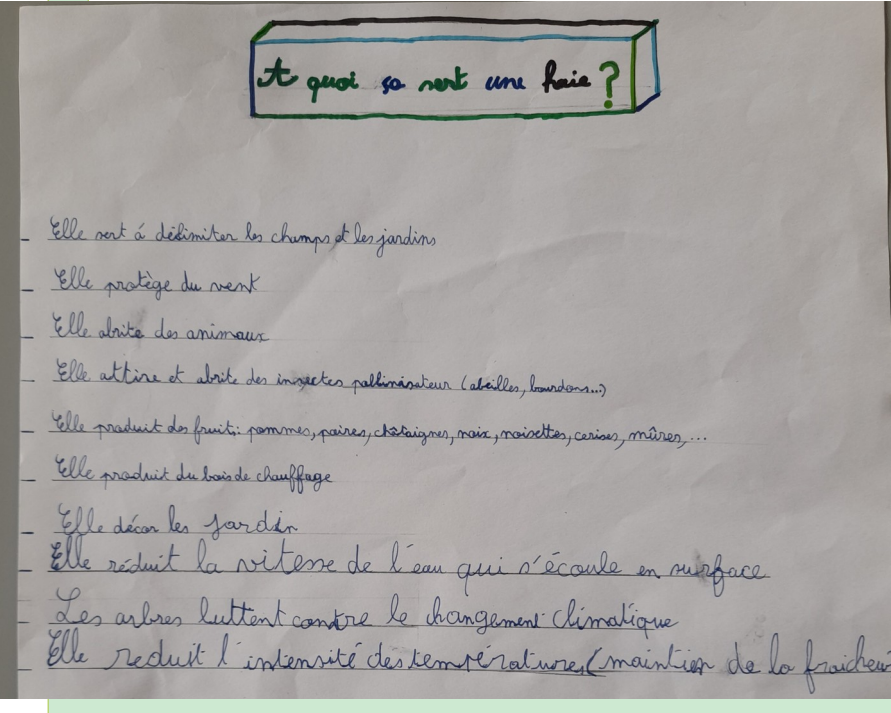 A quoi ça sert une haie ?
- Elle sert á délimiter les champs et les jardins
- Elle protège du vent
- Elle abrite des animaux
- Elle attire et abrite des insectes pollinisateur (abeilles, bourdons...)
- Elle produit des fruits: pommes, poires, châtaignes, noix, noisettes, cerises, mûres,...
- Elle produit du bois de chauffage
- Elle décor les jardin
- Elle réduit la vitesse de l'eau qui s'écoule en surface
- Les arbres luttent contre le changement climatique
- Elle reduit l'intensité des températures (maintien de la fraicheur